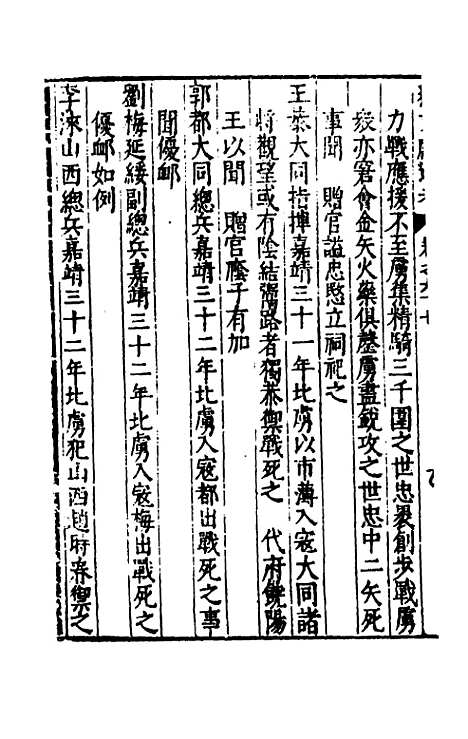 力戰應援不至虜集精騎三千圍之世忠裹創步戰虜
殺亦窘會金矢火藥俱盡虜盡銳攻之世忠中二矢死
事聞　贈官謚忠愍立祠祀之
王恭大同指揮嘉靖三十一年北虜以市薄入寇大同諸
將觀望或有陰結彌路者獨恭禦戰死之　代府饒陽
王以聞　贈官廕子有加
郭都大同總兵嘉靖三十二年北虜入寇都出戰死之事
聞優卹
劉梅延綏副總兵嘉靖三十二年北虜入寇梅出戰死之
優卹如例
李淶山西總兵嘉靖三十二年北虜犯山西趙府春禦之